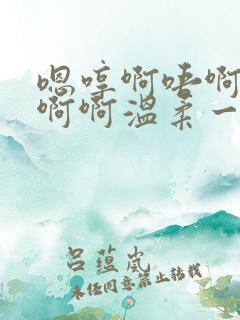 嗯哼啊唔啊
啊啊温柔一
吕蕴岚
未经同意禁止转载